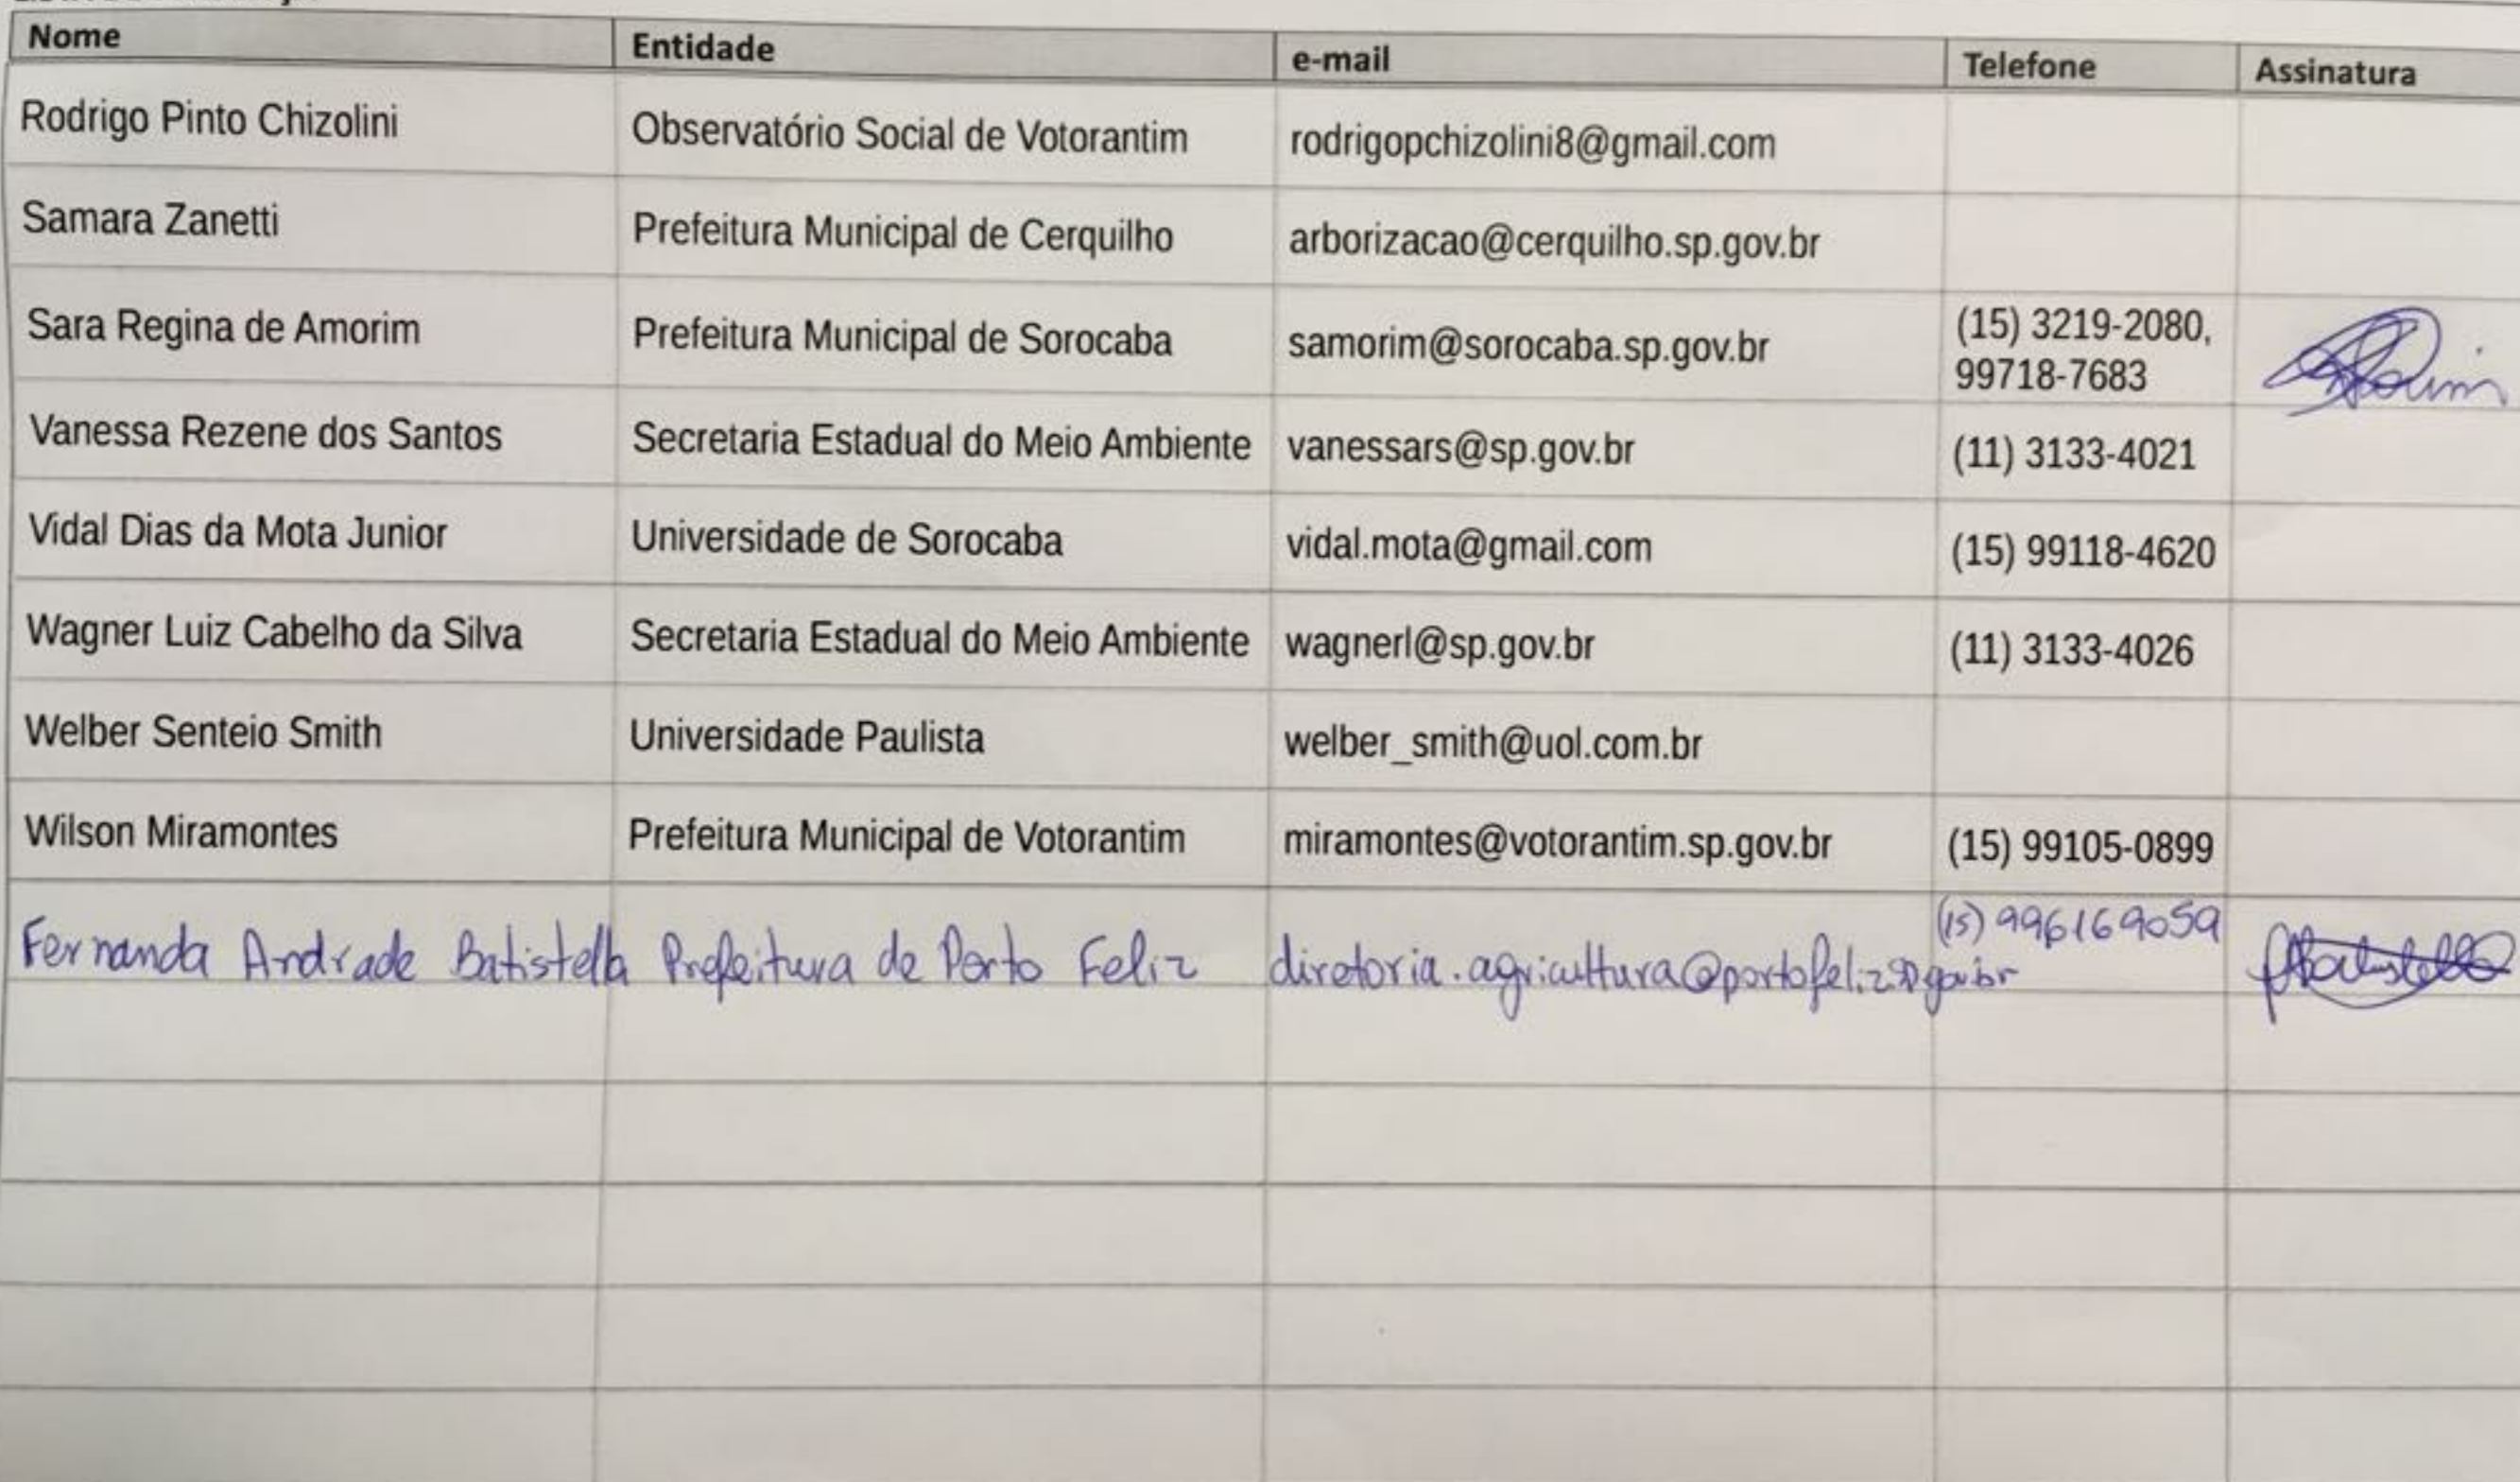 Nome Entidade e-mail Telefone Assinatura
Rodrigo Pinto Chizolini Observatório Social de Votorantim rodrigopchizolini8@gmail.com
Samara Zanetti Prefeitura Municipal de Cerquilho arborizacao@cerquilho.sp.gov.br
Sara Regina de Amorim Prefeitura Municipal de Sorocaba samorim@sorocaba.sp.gov.br (15) 3219-2080,
99718-7683
Vanessa Rezene dos Santos Secretaria Estadual do Meio Ambiente vanessars@sp.gov.br (11) 3133-4021
Vidal Dias da Mota Junior Universidade de Sorocaba vidal.mota@gmail.com (15) 99118-4620
Wagner Luiz Cabelho da Silva Secretaria Estadual do Meio Ambiente wagnerl@sp.gov.br (11) 3133-4026
Welber Senteio Smith Universidade Paulista welber_smith@uol.com.br
Wilson Miramontes Prefeitura Municipal de Votorantim miramontes@votorantim.sp.gov.br (15) 99105-0899
Fernanda Andrade Batistella Prefeitura de Porto Feliz diretoria.agricultura@portofeliz.sp.gov.br (15) 996169059